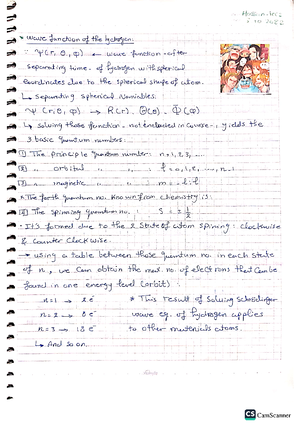 * Wave function of the hydrogen:
∴ Ψ(r, θ, φ) ← wave function after
separating time of hydrogen with spherical
Coordinates due to the spherical shape of atom.
↳ separating spherical variables:
∴ Ψ(r, θ, φ) → R(r) . Θ(θ) . Φ(φ)
↳ solving those function - not included in course -, yields the
3 basic quantum numbers:
1 The principle quantum number: n = 1, 2, 3, ...
2 " orbital " " : l = 0, 1, 2, ..., n-1
3 " magnetic " " : m = -l : l
* The forth quantum no. known from chemistry is:
4 The spinning quantum no. : S = ± 1/2
- It's formed due to the 2 state of atom spining: clockwise
& counter clockwise.
→ using a table between those quantum no. in each state
of n, we can obtain the max no. of electrons that can be
found in one energy level (orbit):
n=1 → 2 e⁻ * This result of solving schrodinger
n=2 → 8 e⁻ wave eq. of hydrogen applies
n=3 → 18 e⁻ to other materials atoms.
↳ And so on.
CS CamScanner